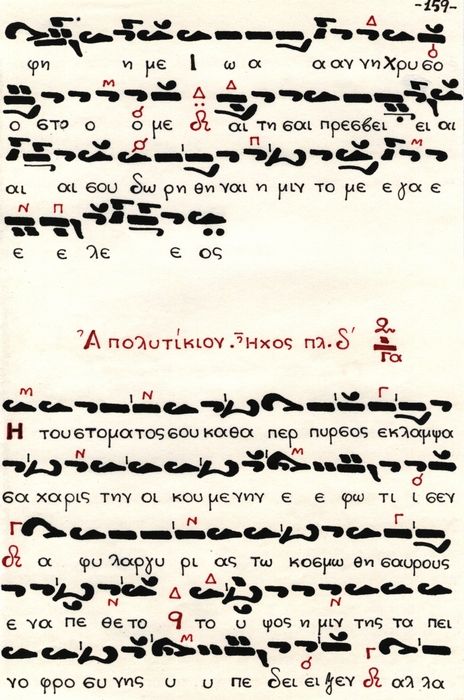 -159-
φη η με Ι ω α α αν νη Χρυσο
ο στο ο ο με αι τη σαι πρεσβει ει αι
αι αι σου δω ρη θη ναι η μιν το με ε γα ε
ε ε λε ε ος
Ἀπολυτίκιον. Ἦχος πλ. δ' Γα
Η του στοματος σου καθα περ πυρσος εκλαμψα
σα χαρις την οι κου μενην ε ε φω τι ι σεν
α φυ λαργυ ρι ας τω κοσμω θη σαυρους
ε να πε θε το το υ ψος η μιν της τα πει
νο φρο συ νης υ υ πε δει ει ξεν αλ λα